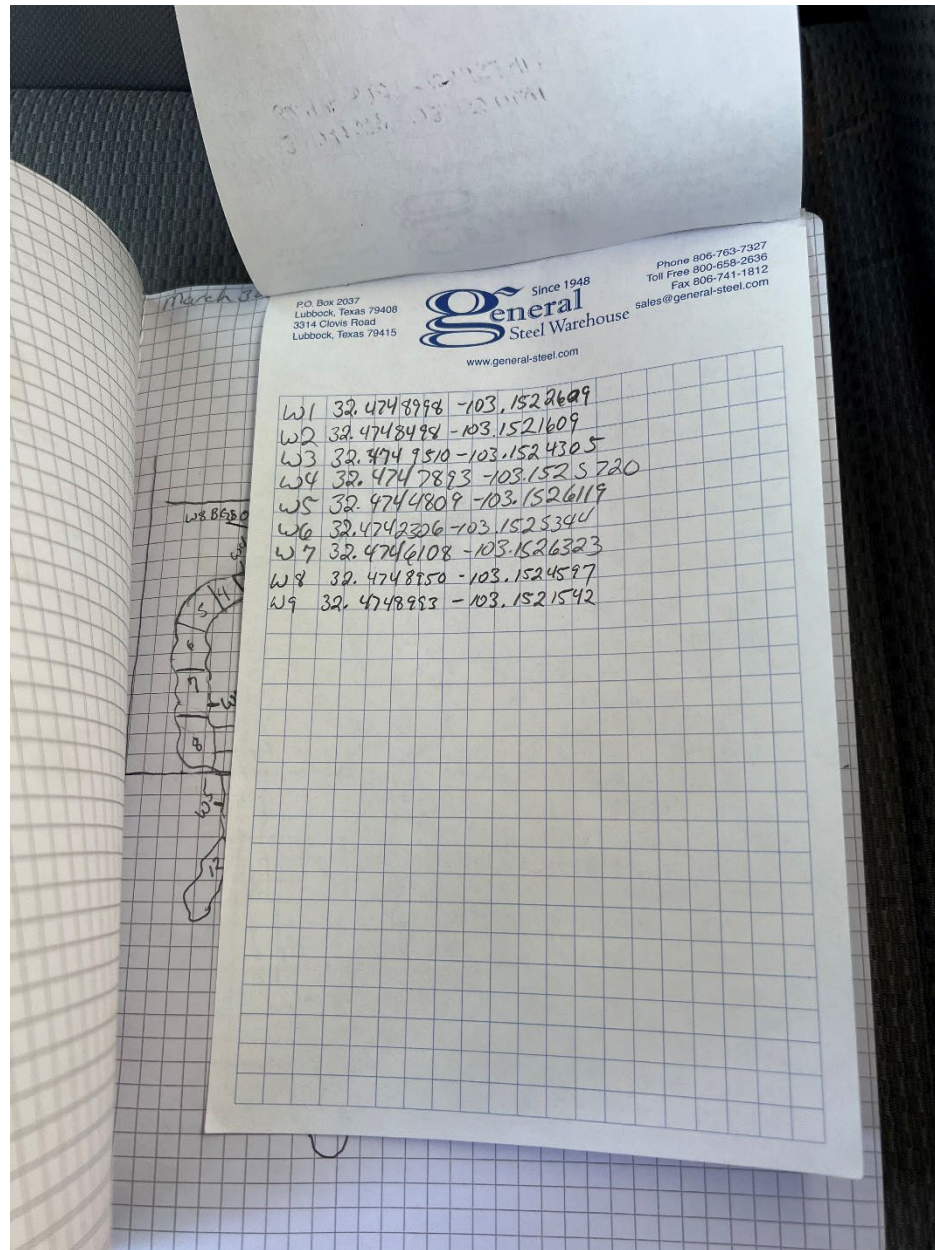 March 3
P.O. Box 2037
Lubbock, Texas 79408
3314 Clovis Road
Lubbock, Texas 79415
Since 1948
general
Steel Warehouse
www.general-steel.com
Phone 806-763-7327
Toll Free 800-658-2636
Fax 806-741-1812
sales@general-steel.com
W1 32.4748998 -103.1522609
W2 32.4748498 -103.1521609
W3 32.4749510 -103.1524305
W4 32.4747893 -103.1525720
W5 32.4744809 -103.1526119
W6 32.4742306 -103.1525344
W7 32.4746108 -103.1526323
W8 32.4748950 -103.1524597
W9 32.4748993 -103.1521542
W8
4
5
6
7
8
W5
12